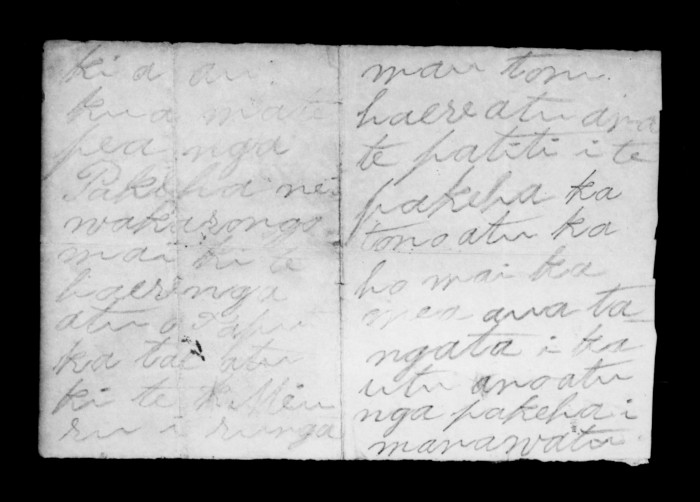 ki a au.
kua mate
pea nga
Pakeha nei
wakarongo
mai ki te
haerenga
atu o Tapu
ka tae atu
ki te
ru i runga
mau tonu.
haereatu ana
te patiti i te
pakeha ka
tonoatu ka
ho mai ka
mea ana ta
ngata i ka
utu anoatu
nga pakeha i
manawatu